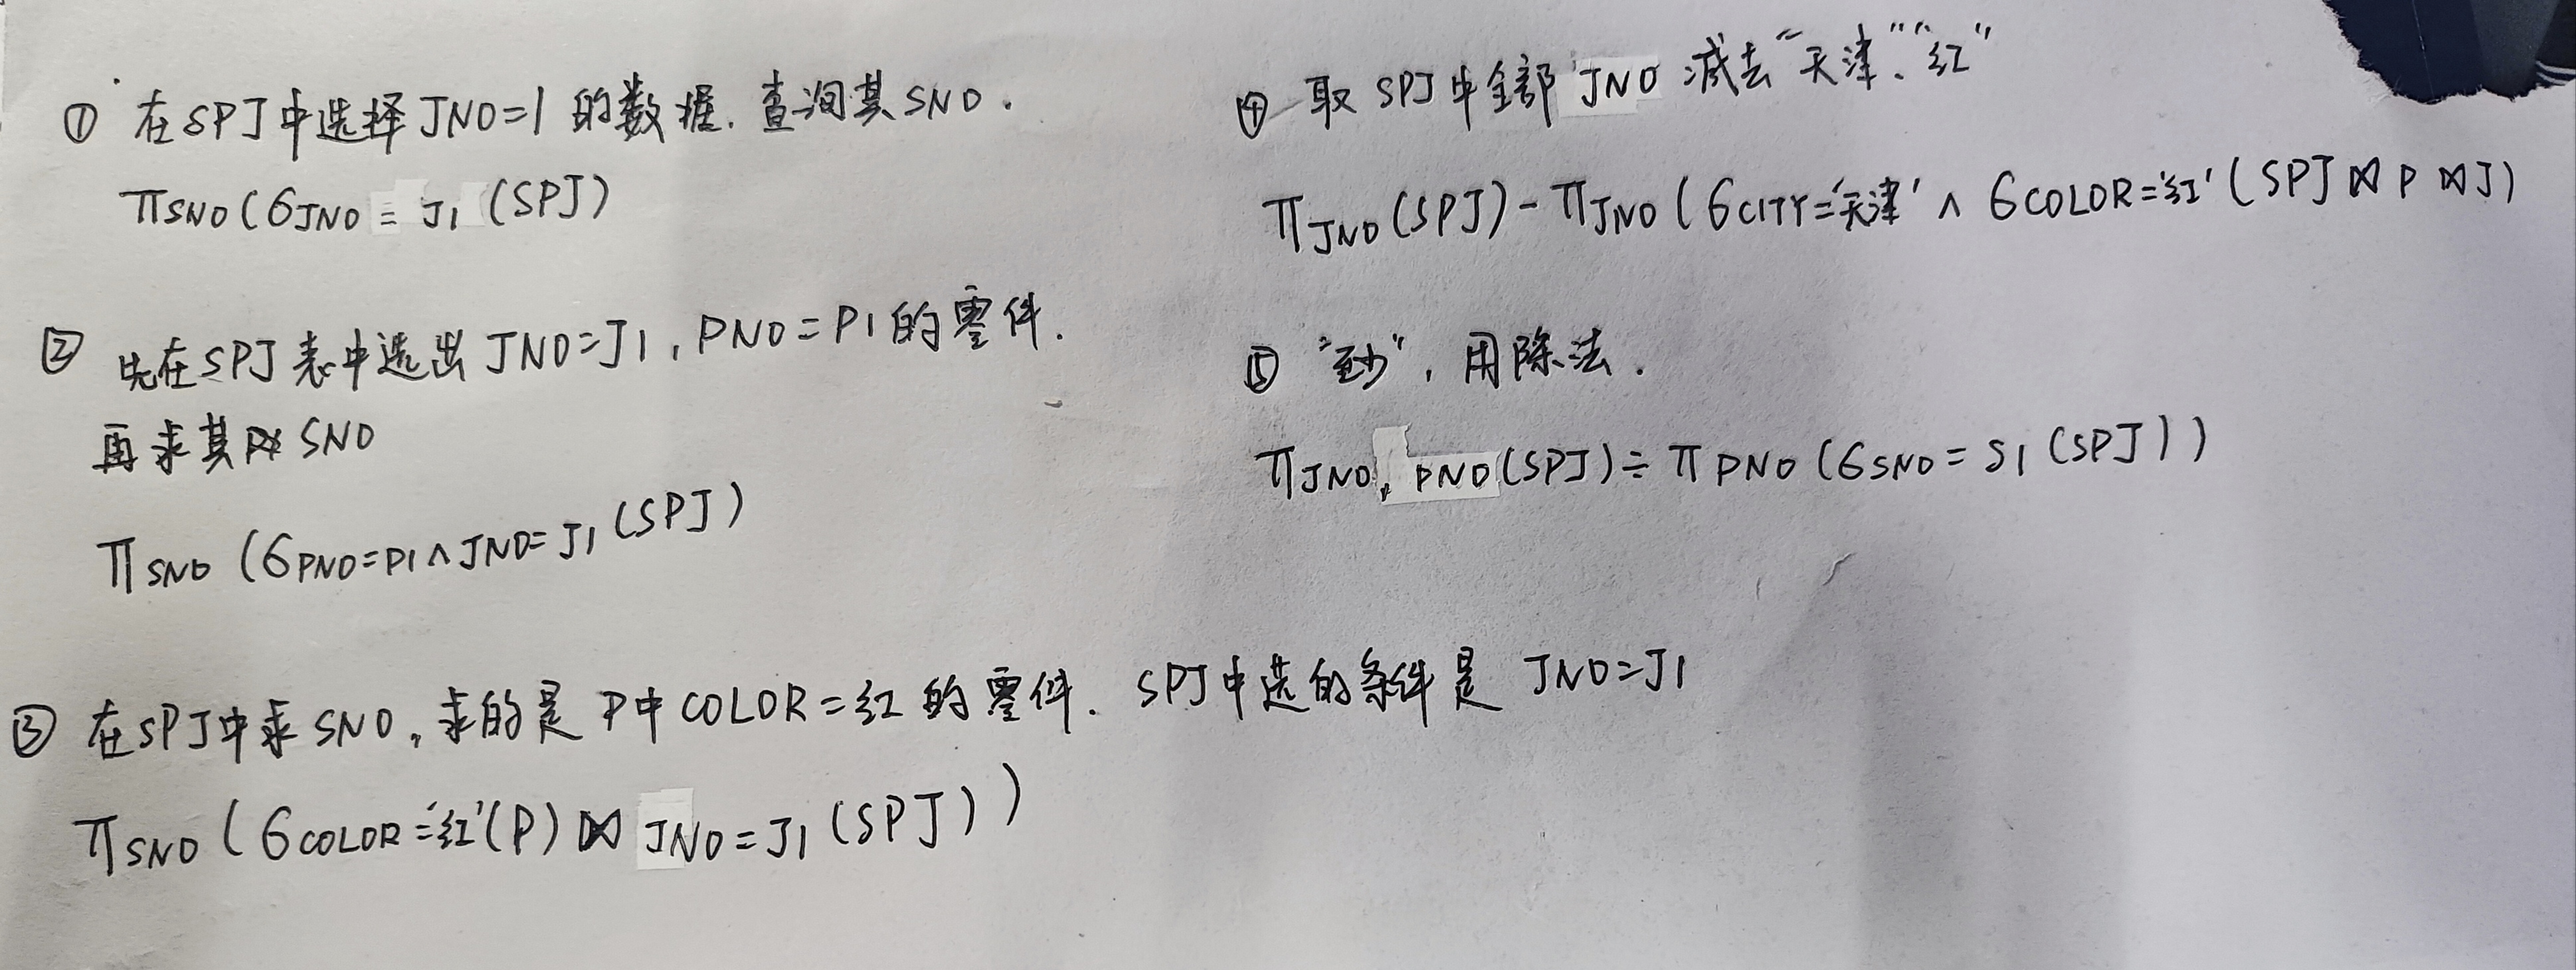 ① 在SPJ中选择JNO=1的数据.查询其SNO.
πSNO(σJNO=J1(SPJ)
② 先在SPJ表中选出JNO=J1,PNO=P1的零件.
再求其SNO
πSNO(σPNO=P1∧JNO=J1(SPJ)
③ 在SPJ中求SNO,求的是P中COLOR=红的零件.SPJ中选的条件是 JNO=J1
πSNO(σCOLOR='红'(P)⋈JNO=J1(SPJ))
④ 取SPJ中全部JNO减去“天津”、“红”
πJNO(SPJ)-πJNO(σCITY='天津'∧σCOLOR='红'(SPJ⋈P⋈J)
⑤ “至少”,用除法.
πJNO,PNO(SPJ)÷πPNO(σSNO=S1(SPJ))